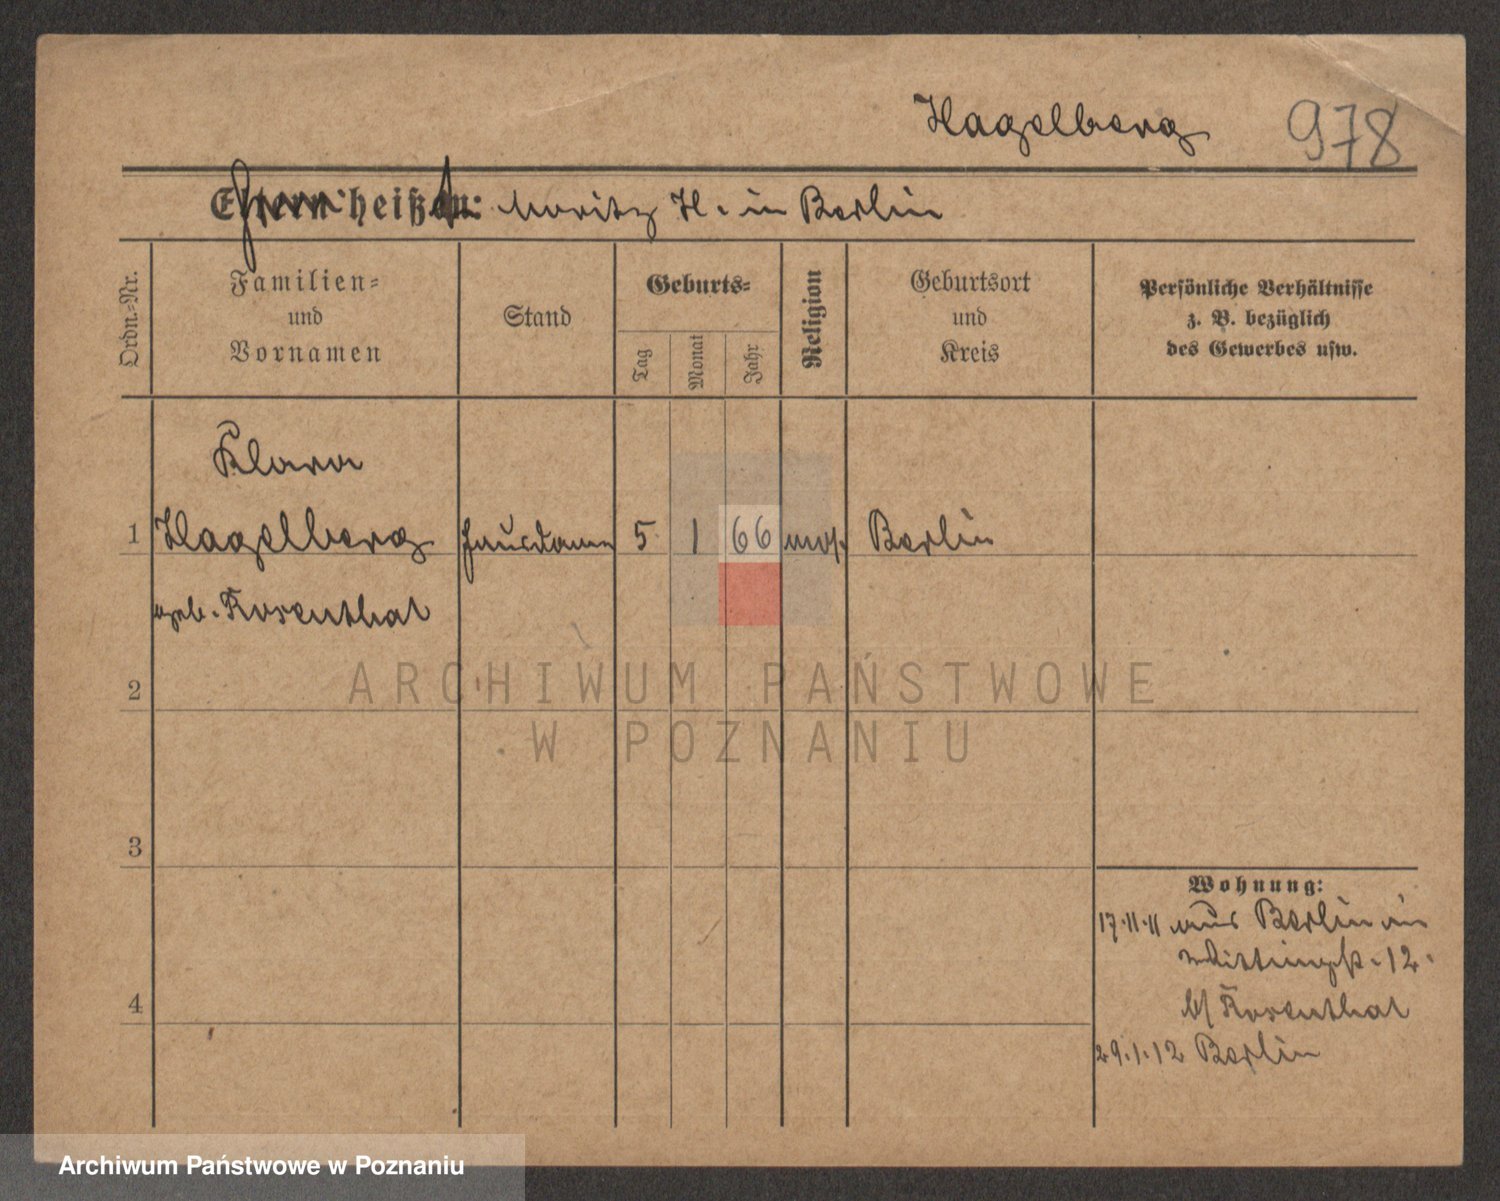 Hagelberg 978
Eltern heißen: Moritz H. in Berlin
Ordn.-Nr.
Familien-
und
Vornamen
Stand
Geburts-
Tag
Monat
Jahr
Religion
Geburtsort
und
Kreis
Persönliche Verhältnisse
z. B. bezüglich
des Gewerbes usw.
Klara
1 Hagelberg Hausdame 5 1 66 mos. Berlin
geb. Rosenthal
2
ARCHIWUM PAŃSTWOWE
W POZNANIU
3
Wohnung:
17.11.11 aus Berlin in
12.
b/ Rosenthal
4
29.1.12 Berlin
Archiwum Państwowe w Poznaniu